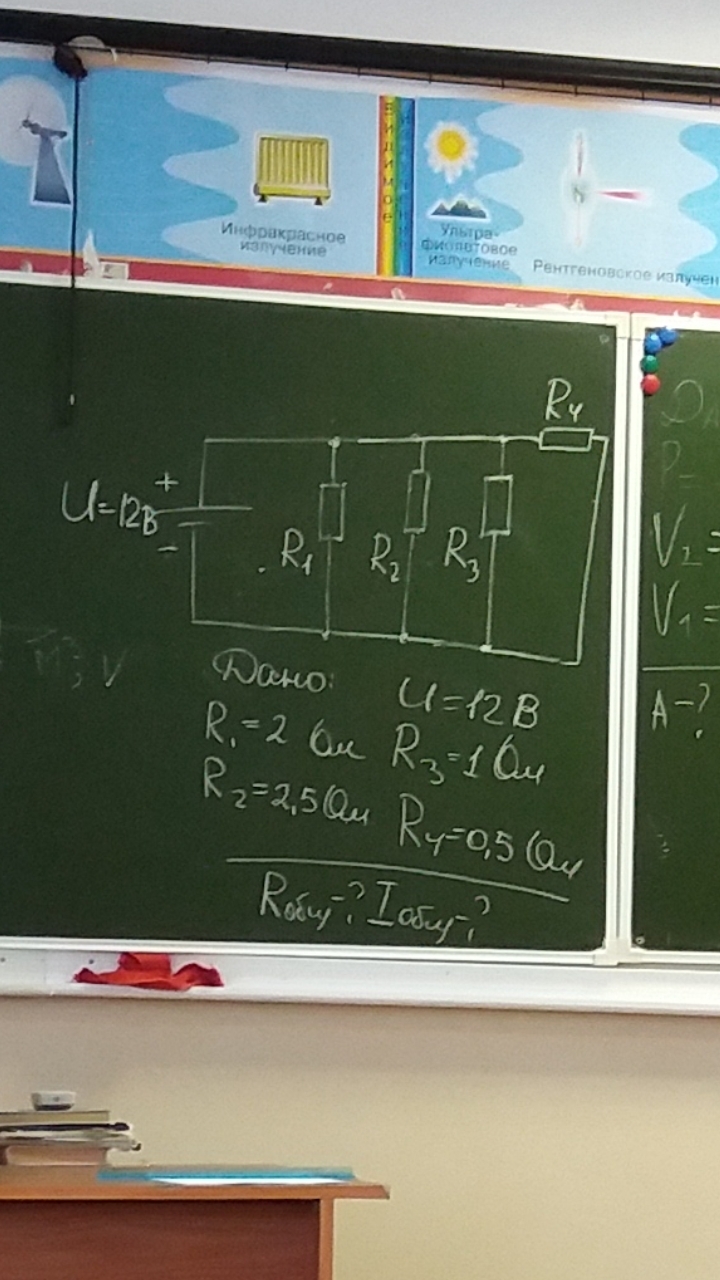 Инфракрасное
излучение
Видимое
Ультра-
фиолетовое
излучение
Рентгеновское излучен
R4
U=12В
+
−
R1
R2
R3
Дано: U=12В
R1=2 Ом R3=1 Ом
R2=2,5 Ом R4=0,5 Ом
Rобщ-? Iобщ-?
P=
V2=
V1=
A-?